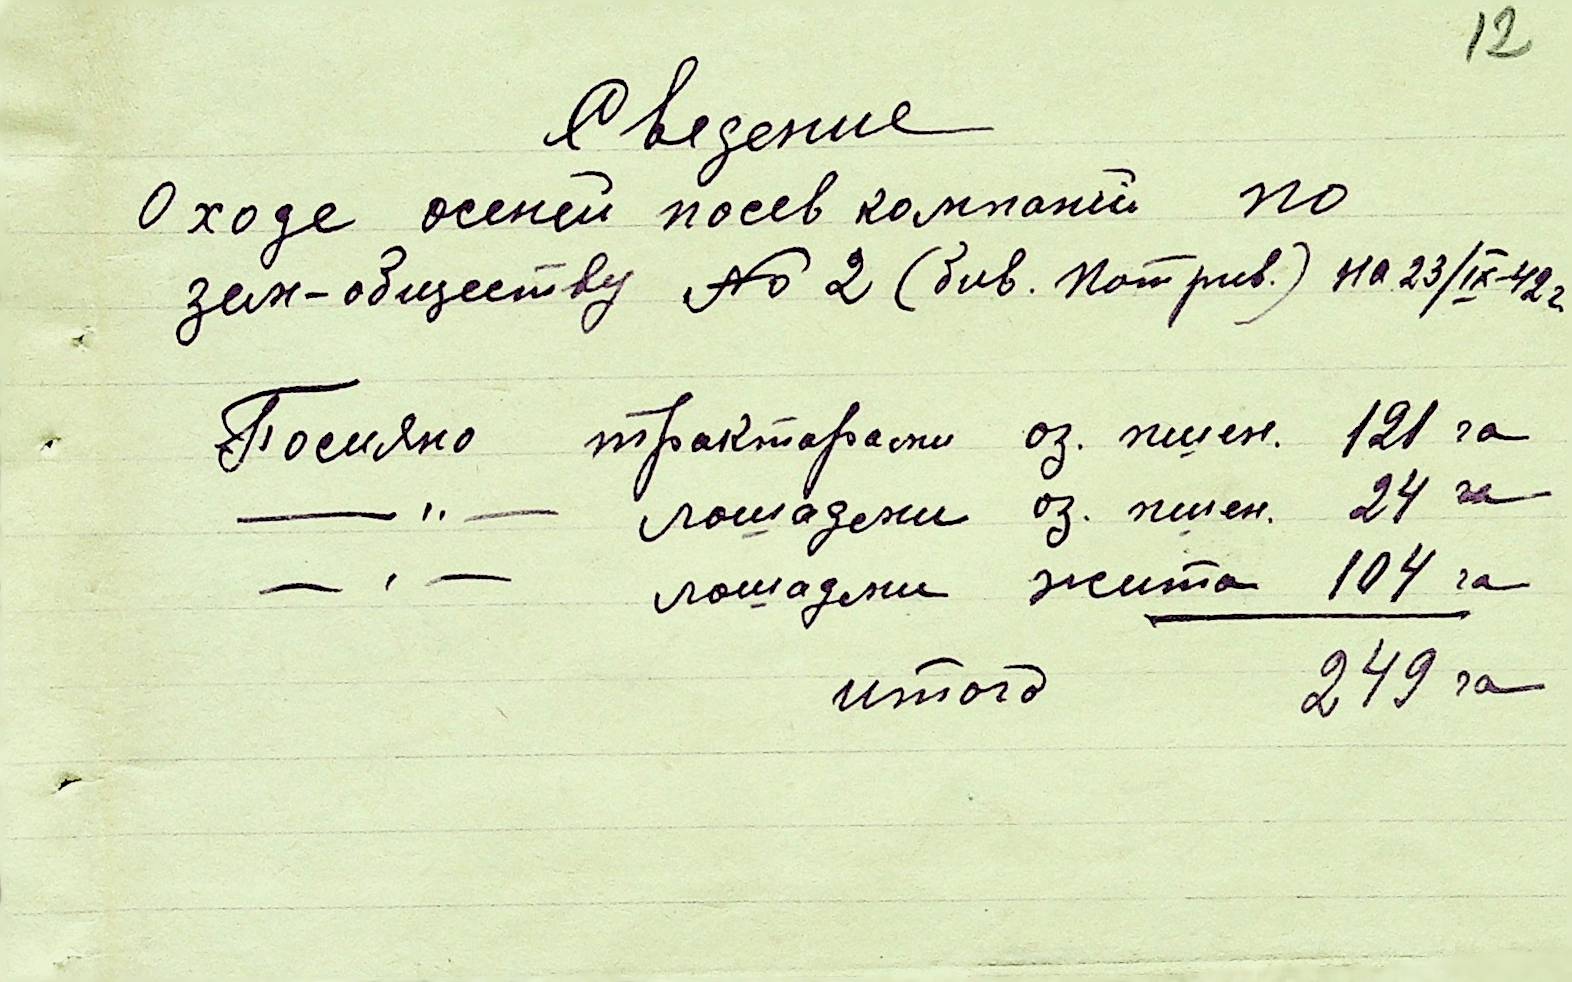 12
Сведение
О ходе осеней посев компании по
зем-обществу № 2 (бив. Потрив.) на 23/IX-42 г
Посияно трактарами оз. пшен. 121 га
—〃— лошадеми оз. пшен. 24 га
—〃— лошадеми жита 104 га
итого 249 га